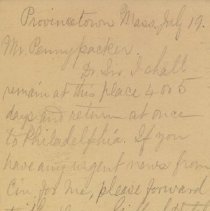 Provincetown Mass, July 19.
Mr. Pennypacker.
Dr Sir I shall
remain at this place 4 or 5
days and return at once
to Philadelphia. If you
have any urgent news from
Cin for me, please forward